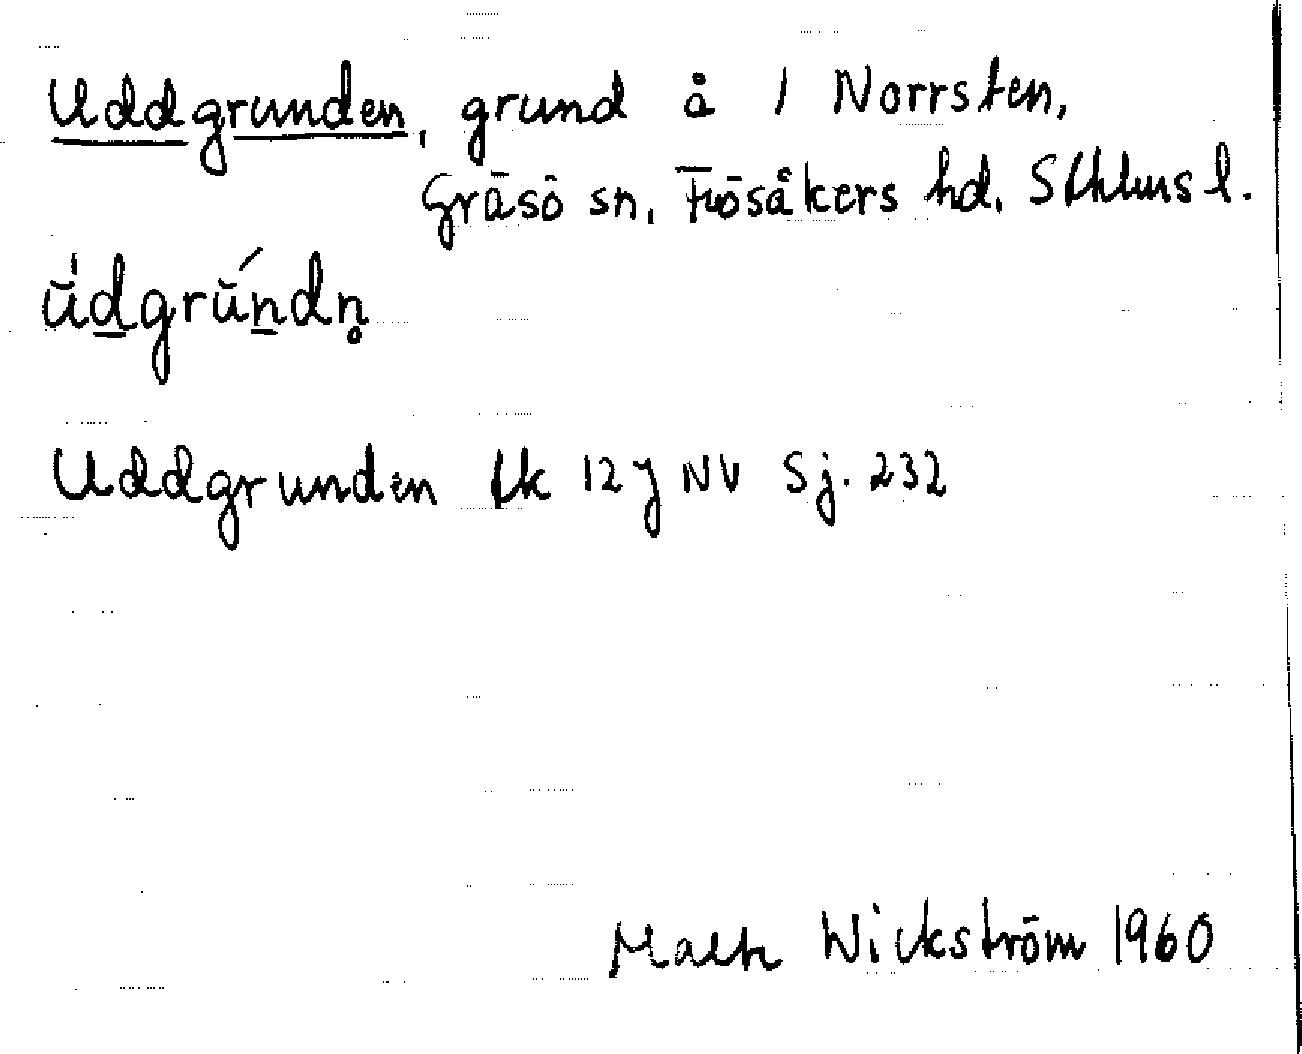 Uddgrunden, grund å 1 Norrsten,
Gräsö sn, Frösåkers hd. Sthlms l.
ŭ́dgrŭ́ndn̥
Uddgrunden Ek 12 J NV Sj. 232
Wickström 1960